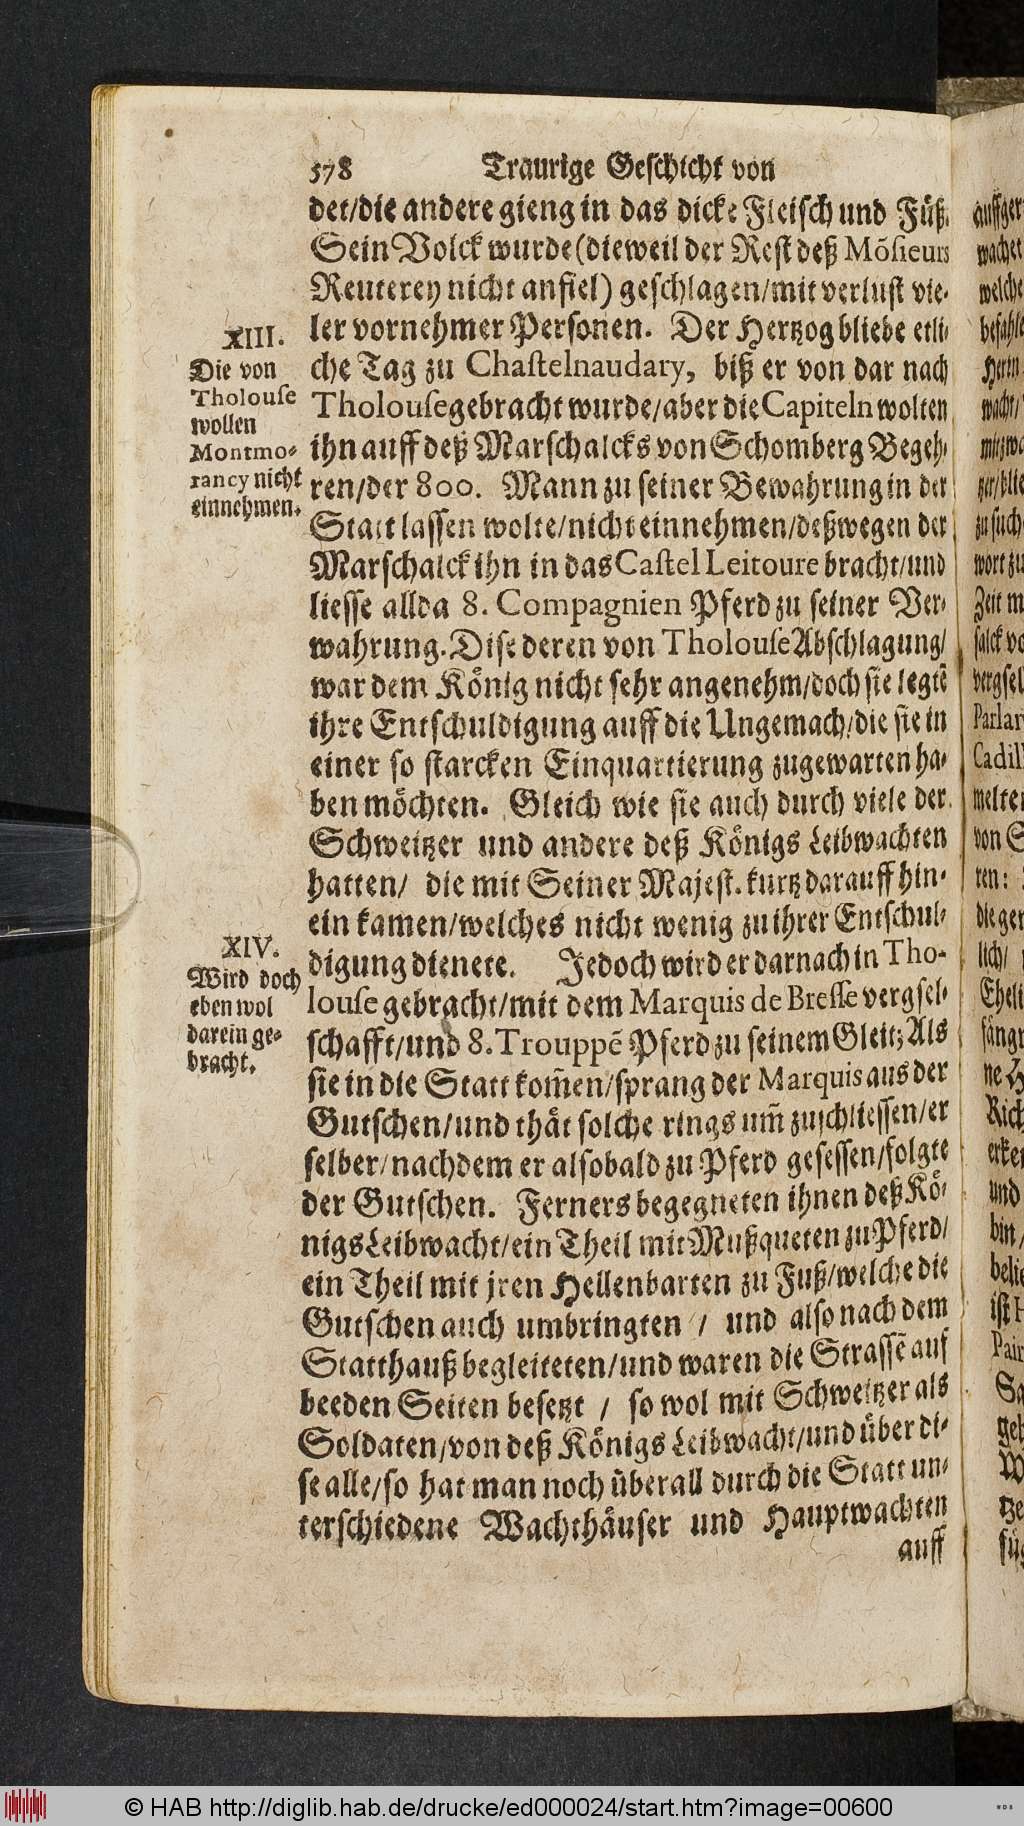 578 Traurige Geschicht von
det/die andere gieng in das dicke Fleisch und Füß.
Sein Volck wurde (dieweil der Rest deß Mõsieurs
Reuterey nicht anfiel) geschlagen/mit verlust vie-
ler vornehmer Personen. Der Hertzog bliebe etli-
che Tag zu Chastelnaudary, biß er von dar nach
Tholouse gebracht wurde/aber die Capiteln wolten
ihn auff deß Marschalcks von Schomberg Begeh-
ren/der 800. Mann zu seiner Bewahrung in der
Statt lassen wolte/nicht einnehmen/deßwegen der
Marschalck ihn in das Castel Leitoure bracht/und
liesse allda 8. Compagnien Pferd zu seiner Ver-
wahrung. Dise deren von Tholouse Abschlagung/
war dem König nicht sehr angenehm/doch sie legtẽ
ihre Entschuldigung auff die Ungemach/die sie in
einer so starcken Einquartierung zugewarten ha-
ben möchten. Gleich wie sie auch durch viele der
Schweitzer und andere deß Königs Leibwachten
hatten/ die mit Seiner Majest. kurtz darauff hin-
ein kamen/welches nicht wenig zu ihrer Entschul-
digung dienete. Jedoch wird er darnach in Tho-
louse gebracht/mit dem Marquis de Bresse vergsel-
schafft/und 8. Trouppẽ Pferd zu seinem Gleit; Als
sie in die Statt kom̃en/sprang der Marquis aus der
Gutschen/und thät solche rings um̃ zuschliessen/er
selber/nachdem er alsobald zu Pferd gesessen/folgte
der Gutschen. Ferners begegneten ihnen deß Kö-
nigs Leibwacht/ein Theil mit Mußqueten zu Pferd/
ein Theil mit jren Hellenbarten zu Fuß/welche die
Gutschen auch umbringten / und also nach dem
Statthauß begleiteten/und waren die Strassẽ auf
beeden Seiten besetzt / so wol mit Schweitzer als
Soldaten/von deß Königs Leibwacht/und über di-
se alle/so hat man noch überall durch die Statt un-
terschiedene Wachthäuser und Hauptwachten
auff
XIII.
Die von
Tholouse
wollen
Montmo-
rancy nicht
einnehmen.
XIV.
Wird doch
eben wol
darein ge-
bracht.
© HAB http://diglib.hab.de/drucke/ed000024/start.htm?image=00600